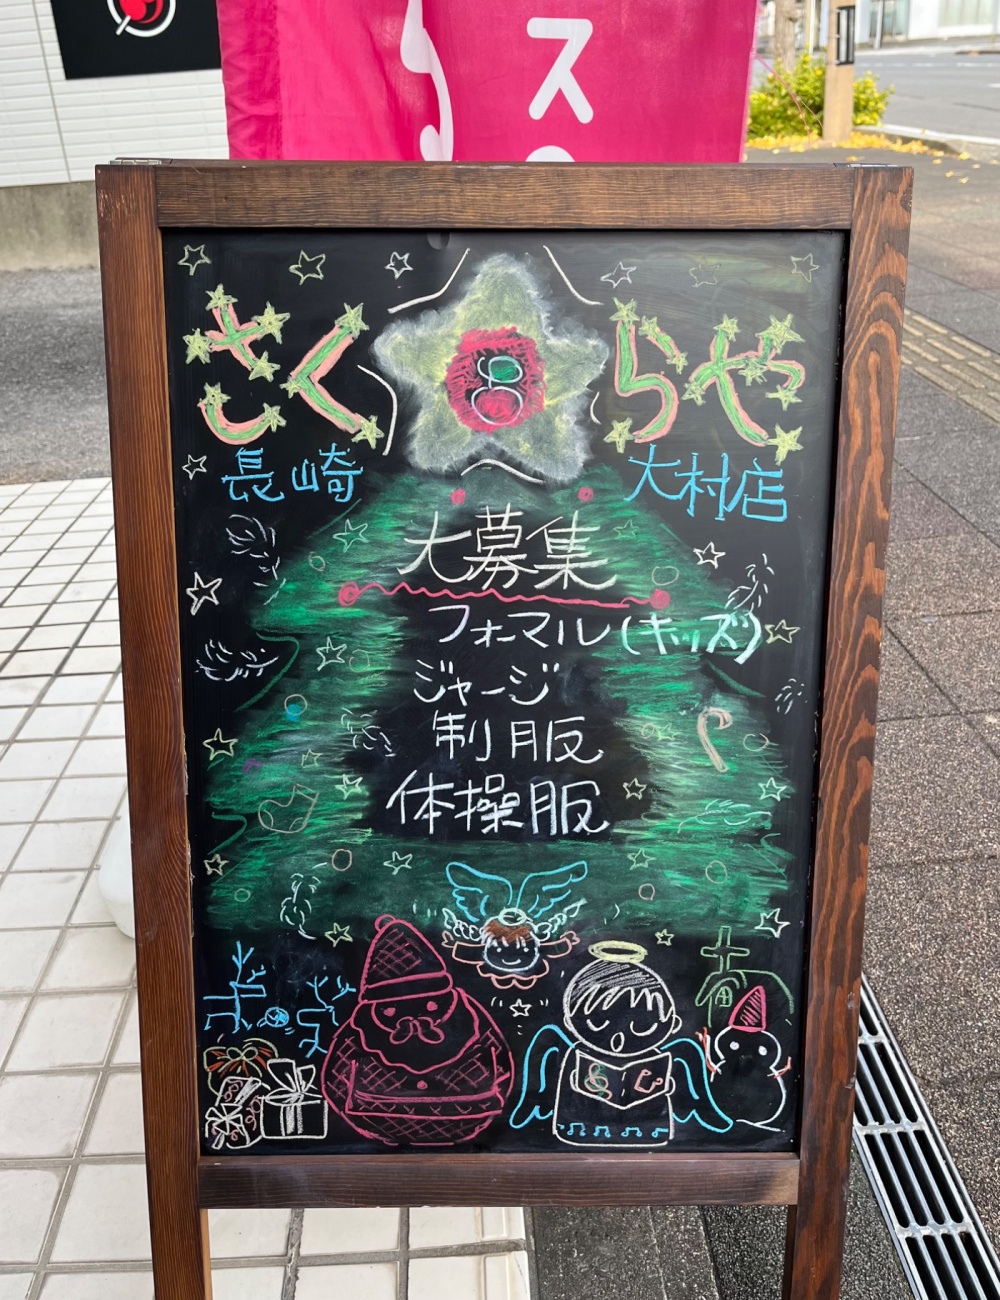 ス
さくらや
長崎 大村店
大募集
フォーマル(キッズ)
ジャージ
制服
体操服